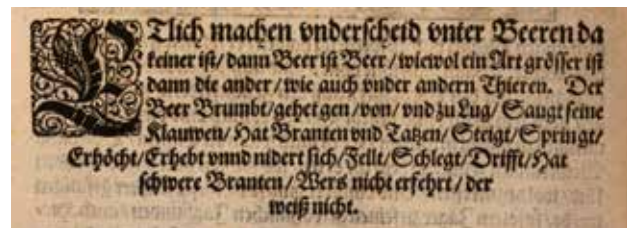 ETlich machen vnderscheid vnter Beeren da
keiner ist/ dann Beer ist Beer/ wiewol ein Art grösser ist
dann die ander/ wie auch vnder andern Thieren. Der
Beer Brumbt/ gehet gen/ von/ vnd zu Lug/ Saugt seine
Klauwen/ Hat Branten vnd Tatzen/ Steigt/ Springt/
Erhöcht/ Erhebt vnnd nidert sich/ Fellt/ Schlegt/ Drifft/ Hat
schwere Branten/ Wers nicht erfehrt/ der
weiß nicht.